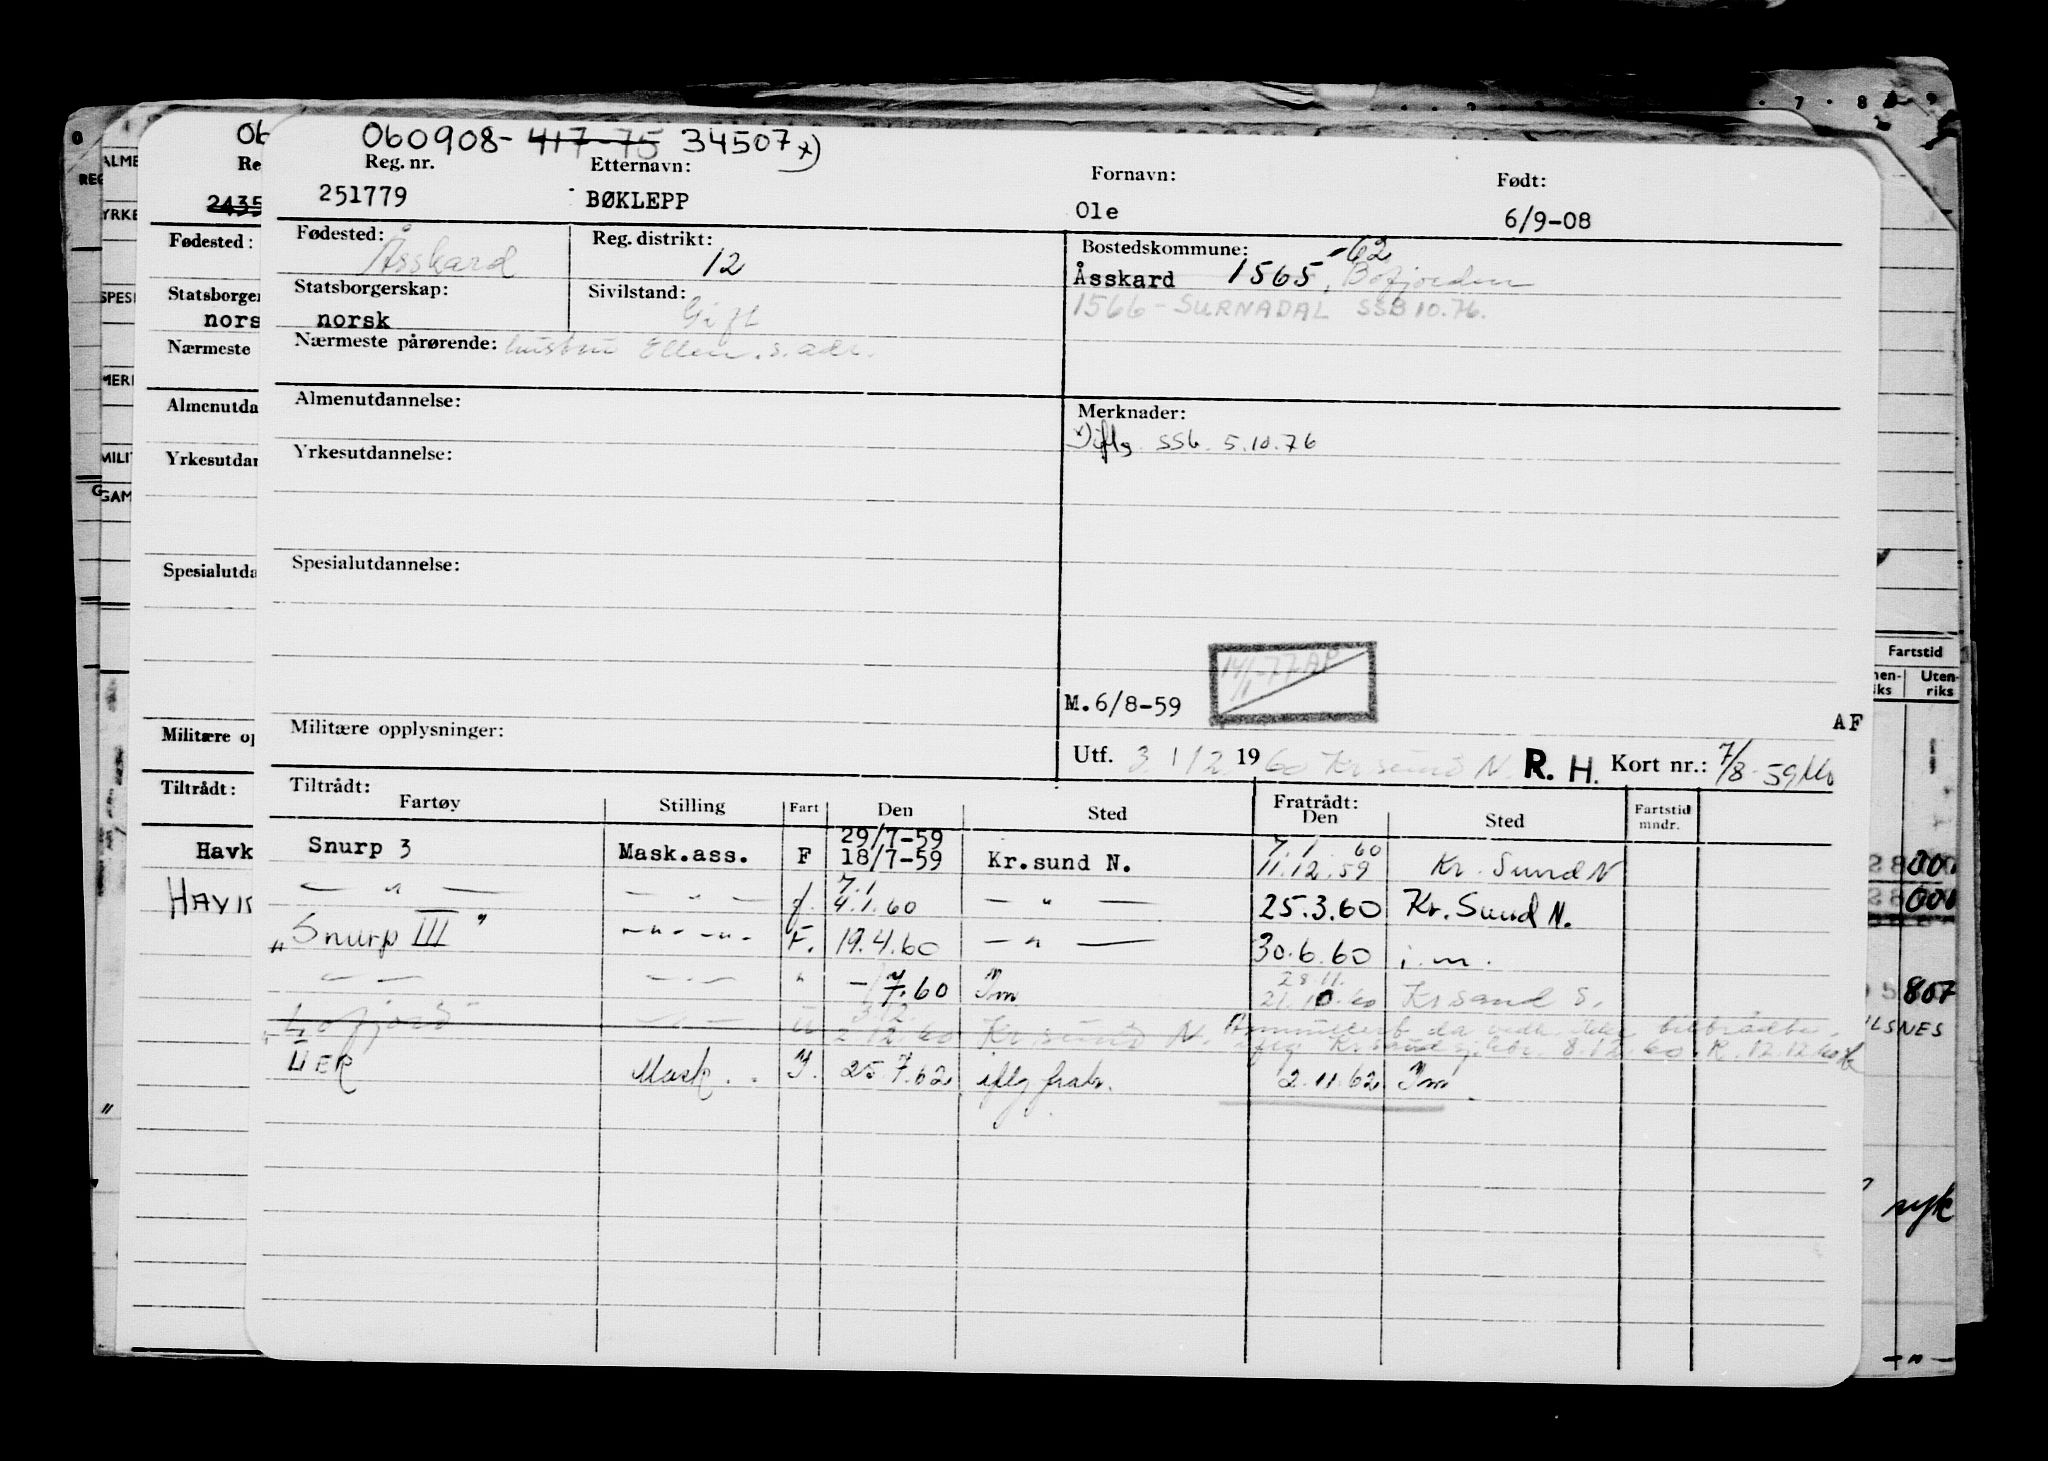 060908- 417-75 34507 x)
Reg. nr. Etternavn: Fornavn: Født:
251779 BØKLEPP Ole 6/9-08
Fødested: Åsskard Reg. distrikt: 12 Bostedskommune: -62
Åsskard 1565, Bøfjorden
Statsborgerskap: norsk Sivilstand: Gift 1566 - SURNADAL SSB 10.76.
Nærmeste pårørende: hustru Ellen. s. adr.
Almenutdannelse: Merknader:
x) iflg. SSb. 5.10.76
Yrkesutdannelse:
Spesialutdannelse:
14/1-77 AP
M.6/8-59
AF
Militære opplysninger: Utf. 3/12 1960 Kr sund N. R. H. Kort nr.: 7/8-59
Tiltrådt: Fratrådt:
Fartøy Stilling Fart Den Sted Den Sted Fartstid mndr.
29/7-59 7.1 60
Snurp 3 Mask.ass. F 18/7-59 Kr.sund N. 11.12.59 Kr. Sund N
7.1
— " — — " — f. 4.1.60 — " — 25.3.60 Kr. Sund N.
"Snurp III" -"- -"- F. 19.4.60 — " — 30.6.60 i.m.
28.11.
— — — — " -/7.60 Im 21.10.60 Kr sand S.
3/12.
2.12.60 Kr sund N. 8.12.60 R. 12.12.60
Mask. . 25.7.62 iflg frabr. 2.11.62 Im.
06
Re
2435
Fødested:
Statsborger
nors
Nærmeste
Almenutda
Yrkesutdan
Spesialutda
Militære op
Tiltrådt:
Havk
ALME
REG
YRKE
SPESI
MERI
MILIT
GAM
7 8
Fartstid
Uten-
riks
807
ILSNES
syk
— " —